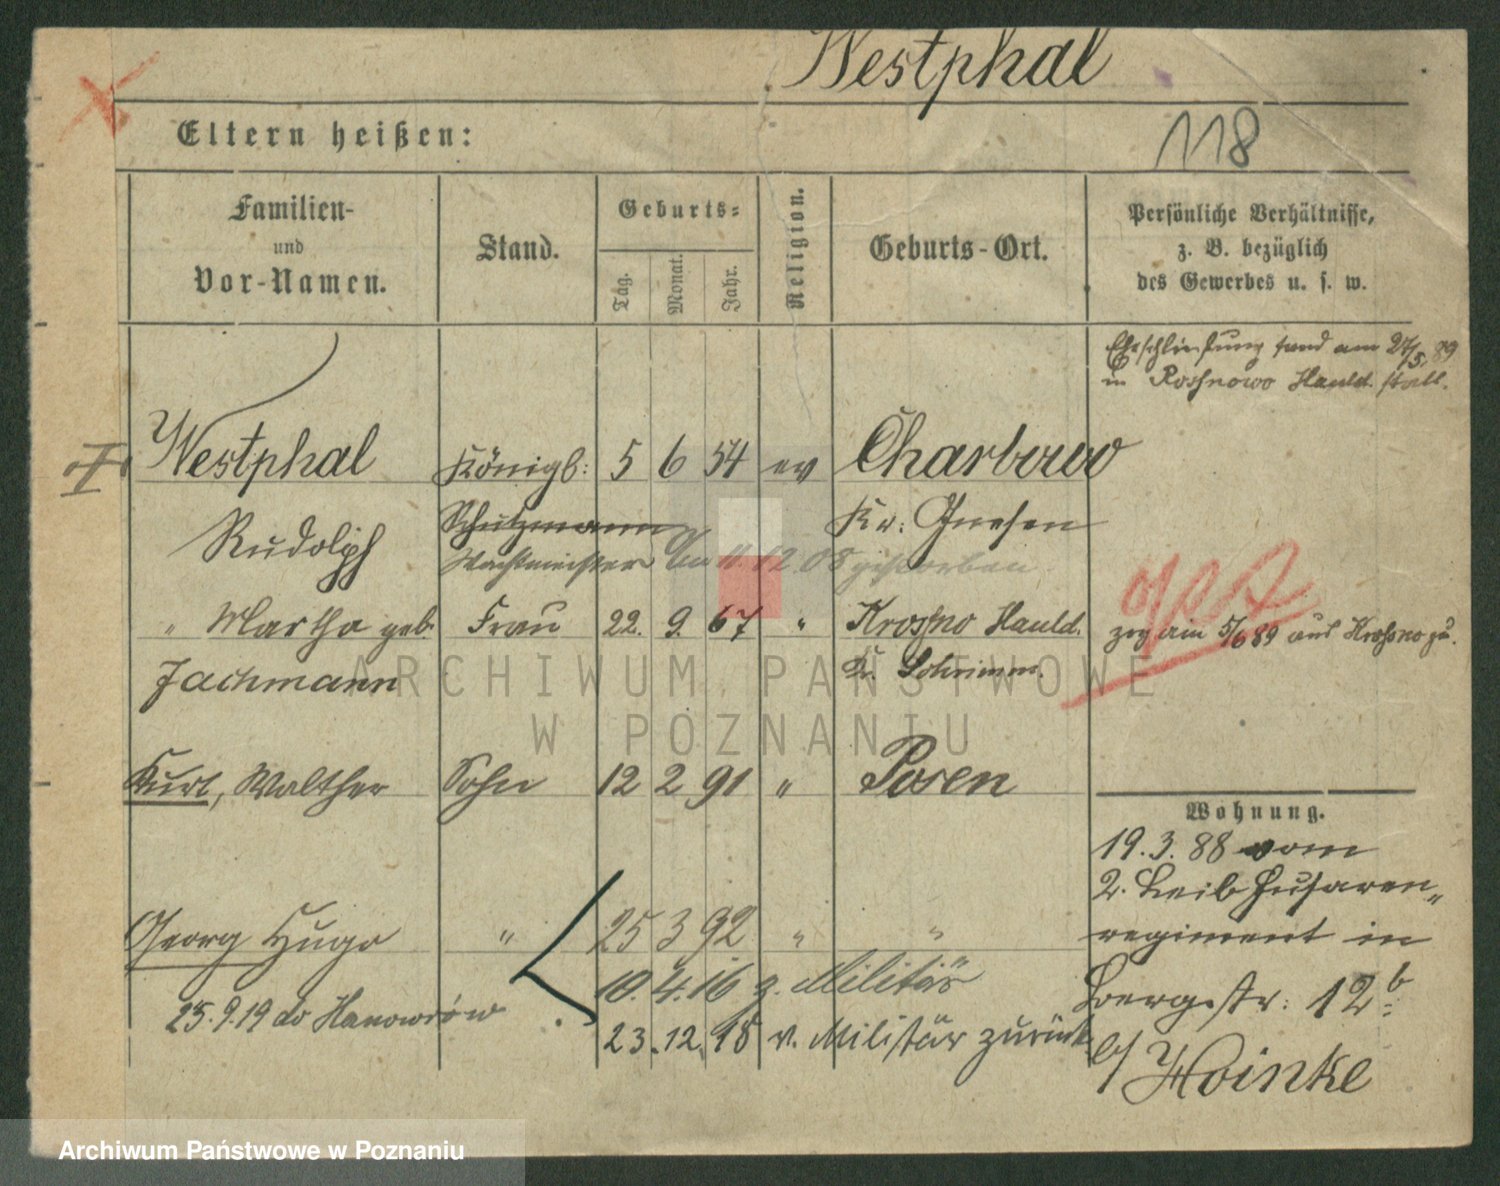 Westphal
118
Eltern heißen:
Familien-
und
Vor-Namen.
Stand.
Geburts-
Tag.
Monat.
Jahr.
Religion.
Geburts-Ort.
Persönliche Verhältnisse,
z. B. bezüglich
des Gewerbes u. s. w.
Eheschließung fand am 27/5. 89
in Roschnowo Hauld. statt.
Westphal Königl: 5 6 54 ev Charbowo
Rudolph Schutzmann Kr: Gnesen
Wachtmeister Am 11.12.08 gestorben
" Martha geb. Frau 22. 9. 67 " Krosno Hauld.
zog am 5/6 89 aus Krosno zu.
Jachmann Kr. Schrimm.
Kurt, Walther Sohn 12 2 91 " Posen
Wohnung.
19.3.88 vom
2. Leib Husaren-
regiment in
Bergstr: 12b
b/ Hoinke
Georg Hugo " 25 3 92 " "
10.4.16 z. Militär
25.9.19 do Hanowrów
23.12.18 v. Militär zurück
ARCHIWUM PAŃSTWOWE
W POZNANIU
Archiwum Państwowe w Poznaniu